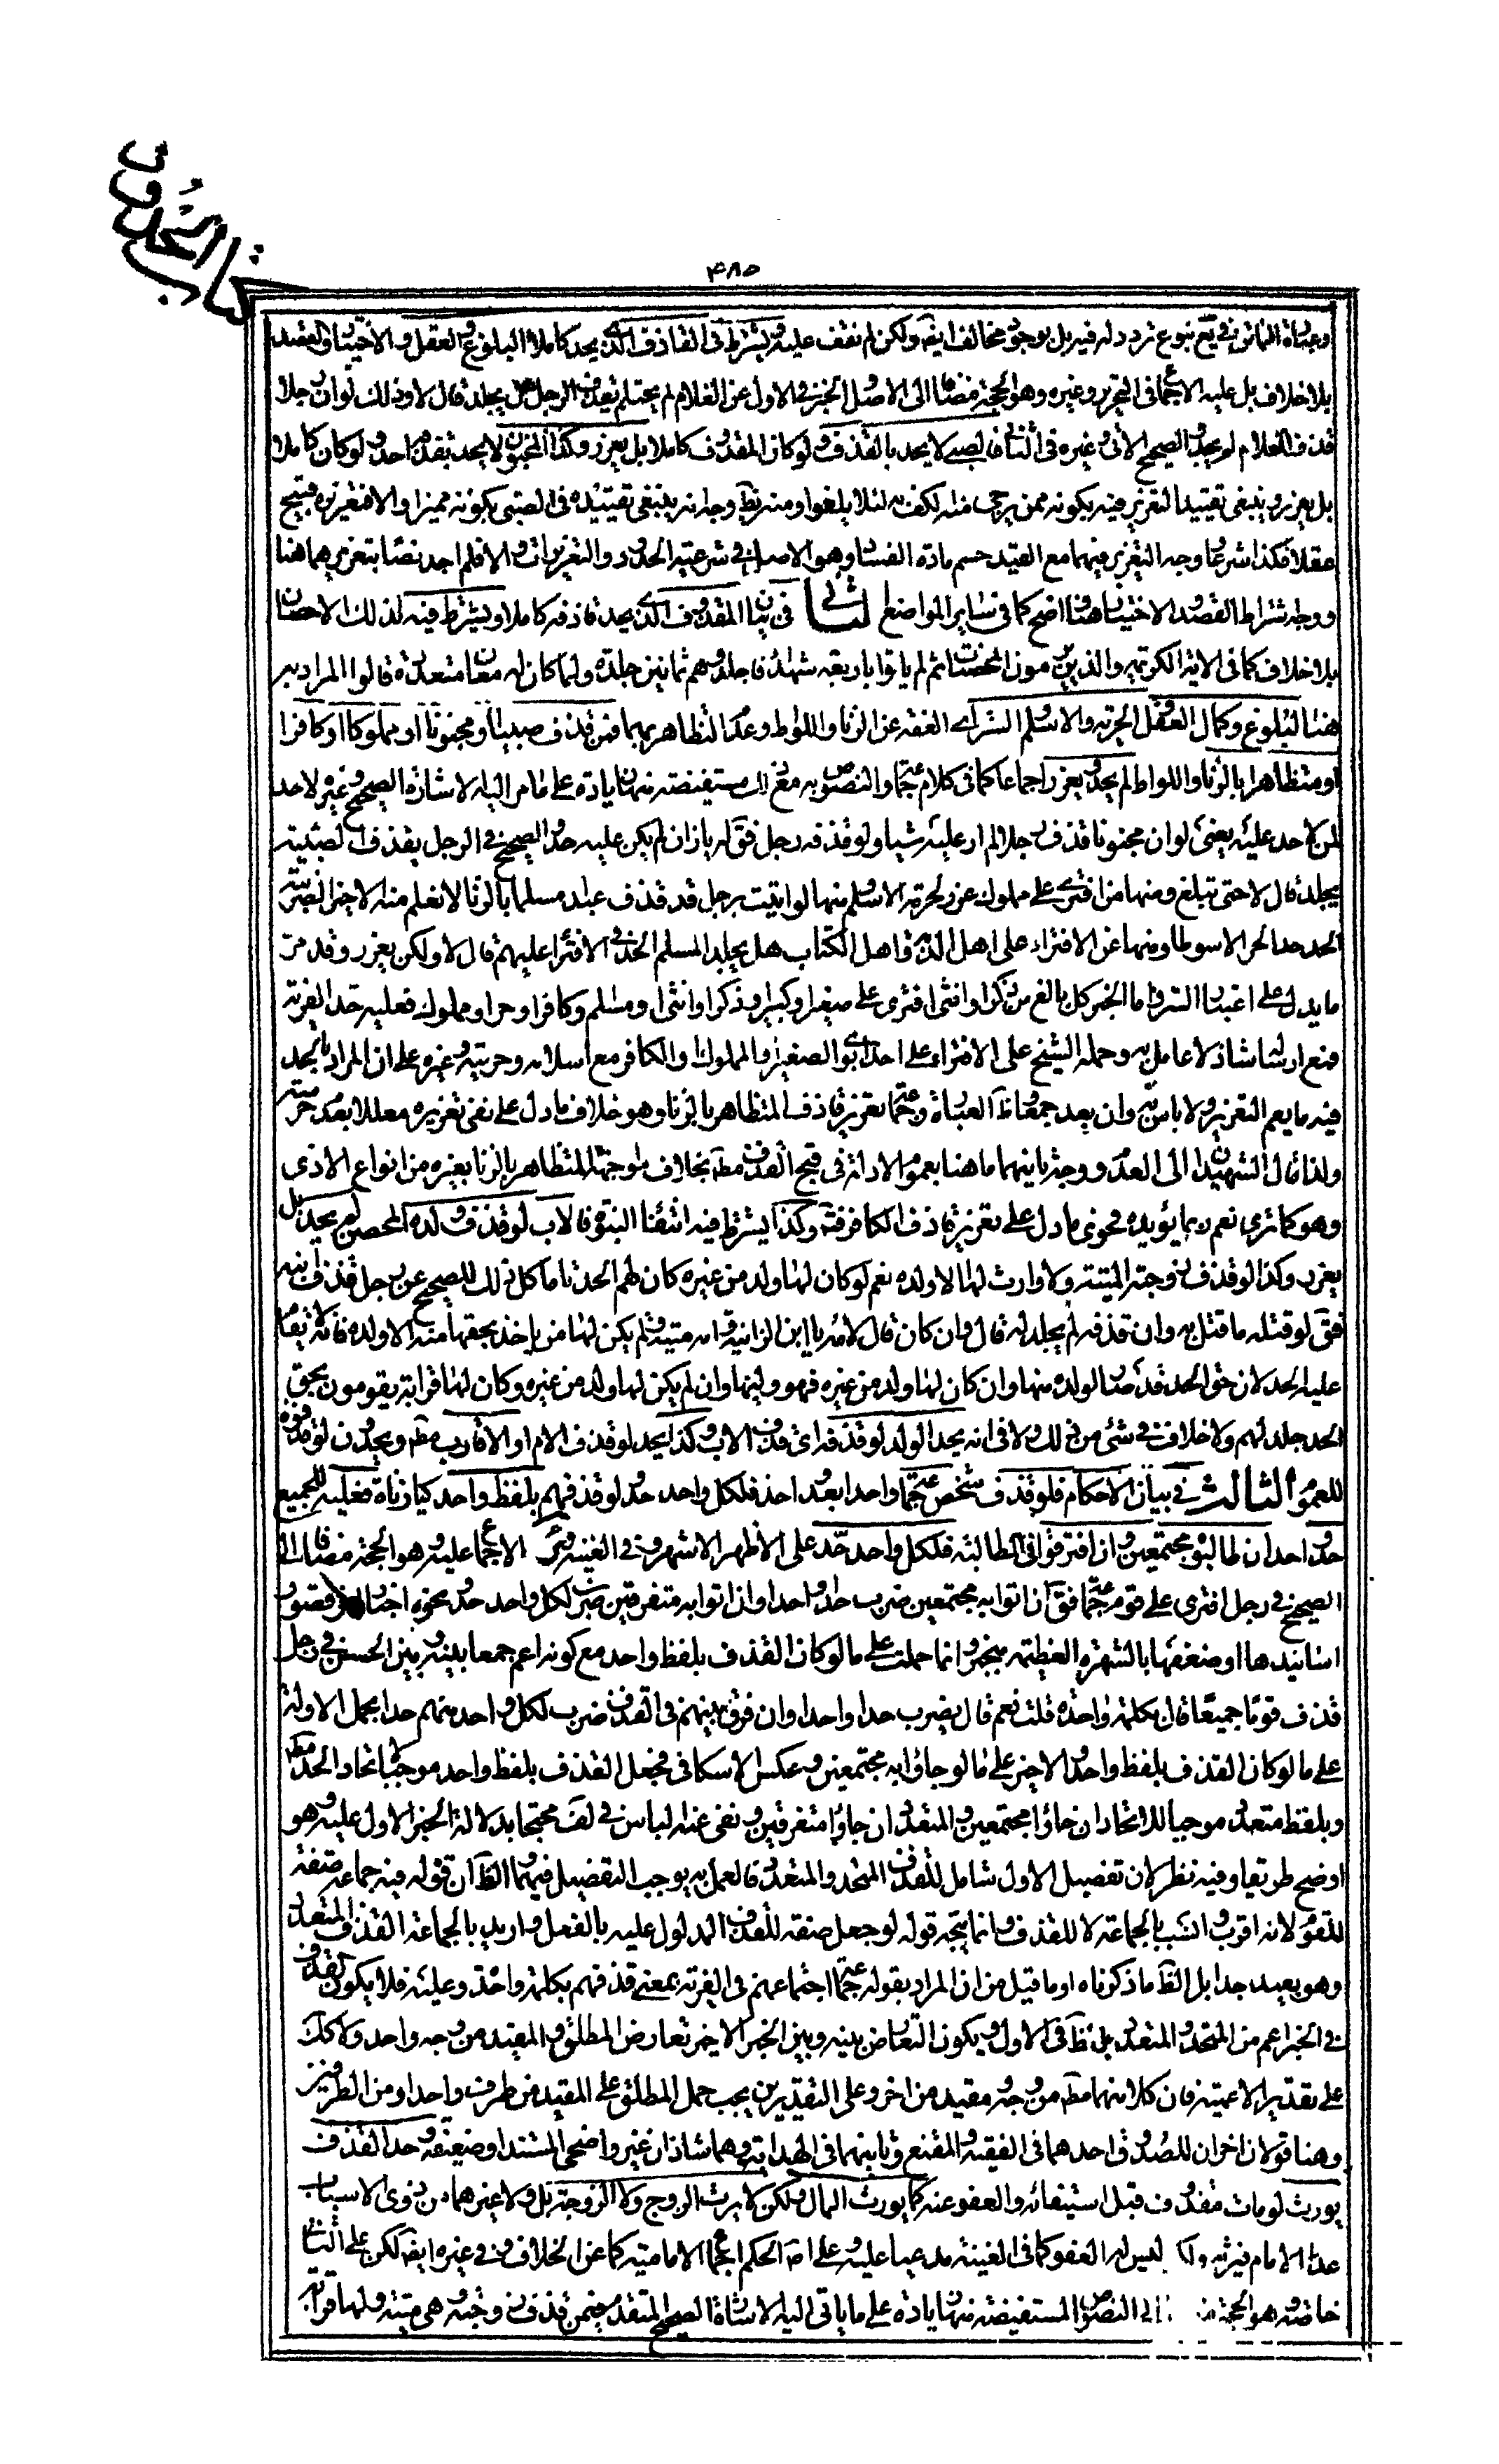 كتاب الحدود
۴۸۵
وعبارة الماتن في يع بنوع تردد له فيه بل بوجود مخالف ايضا ولكن لم نقف عليه ويشترط في القاذف الذي يحد كاملا البلوغ والعقل والاختيار والقصد
بلا خلاف بل عليه الاجماع في التحرير وغيره وهو الحجة مضافا الى الاصل والخبر في الاول عن الغلام لم يحتلم يقذف الرجل هل يجلد قال لا وذلك لو ان رجلا
قذف الغلام لم يجلد والصحيح الاتي وغيره في الثاني فالصبي لا يحد بالقذف ولو كان المقذوف كاملا بل يعزر وكذا المجنون لا يحد بقذفه احدا ولو كان كاملا
بل يعزر وينبغي تقييد التعزير فيه بكونه ممن يرجى منه الكف به لئلا يلغوا ومنه يظ وجه انه ينبغي تقييده في الصبي بكونه مميزا والا فتعزيره قبيح
عقلا فكذا شرعا ووجه التعزير فيهما مع القيد حسم مادة الفساد وهو الاصل في شرعية الحدود والتعزيرات والا فلم اجد نصا بتعزيرهما هنا
ووجه اشتراط القصد والاختيار هنا واضح كما في ساير المواضع الثاني في بيان المقذوف الذي يحد قاذفه كاملا ويشترط فيه لذلك الاحصان
بلا خلاف كما في الاية الكريمة والذين يرمون المحصنات ثم لم ياتوا باربعة شهداء فاجلدوهم ثمانين جلدة ولما كان له معان متعددة قالوا المراد به
هنا البلوغ وكمال العقل والحرية والاسلم والستر اي العفة عن الزنا واللواط وعدم التظاهر بهما فمن قذف صبيا او مجنونا او مملوكا او كافرا
او متظاهرا بالزنا واللواط لم يحد ويعزر اجماعا كما في كلام جماعة والنصوص به مع ذلك مستفيضة منها زيادة على ما مر اليه الاشارة الصحيح وغيره لا حد
لمن لا حد عليه يعني لو ان مجنونا قذف رجلا لم ار عليه شيئا ولو قذفه رجل فق له يا زان لم يكن عليه حد والصحيح في الرجل يقذف الصبية
يجلد قال لا حتى تبلغ ومنها من افترى على مملوك عزر لحرمة الاسلم ومنها لو اتيت برجل قد قذف عبدا مسلما بالزنا لا نعلم منه الا خيرا لضربته
الحد حد الحر الا سوطا ومنها عن الافتراء على اهل الذمة واهل الكتاب هل يجلد المسلم الحد في الافتراء عليهم قال لا ولكن يعزر وقد مر
ما يدل على اعتبار الستر واما الخبر كل بالغ من ذكر او انثى افترى على صغير او كبير او ذكر او انثى او مسلم او كافر او حر او مملوك فعليه حد الفرية
فمع ارساله شاذ لا عامل به وحمله الشيخ على الافتراء على احد ابوي الصغير والمملوك او الكافر مع اسلامه وحريته وغيره على ان المراد بالحد
فيه ما يعم التعزير ولا باس به وان بعد جمعا ثم ان العبارة وجماعة تعزير قاذف المتظاهر بالزنا وهو خلاف ما دل على نفي تعزيره معللا بعدم حرمته
ولذا مال الشهيدان الى العدم ووجه ثانيهما ما هنا بعموم الادلة في قبح القذف مط بخلاف مواجهة المتظاهر بالزنا بغيره من انواع الاذى
وهو كما ترى نعم ربما يؤيده فحوى ما دل على تعزير قاذف الكافر فتم وكذا يشترط فيه انتفاء البنوة فالاب لو قذف ولده المحصن لم يحد بل
يعزر وكذا لو قذف زوجته الميتة ولا وارث لها الا ولده نعم لو كان لها ولد من غيره كان لهم الحد تاما كل ذلك للصحيح عن رجل قذف ابنه
فق لو قتله ما قتل به وان قذفه لم يجلد له قال وان كان قال لامه يا ابن الزانية وامه ميتة ولم يكن لها من ياخذ بحقها منه الا ولده فانه لا يقام
عليه الحد لان حق الحد قد صار لولده منها وان كان لها ولد من غيره فهو وليها وان لم يكن لها ولد من غيره وكان لها قرابة يقومون بحق
الحد جلد لهم ولا خلاف في شئ من ذلك ولا في انه يحد الولد لو قذفه اي قذف الاب وكذا يحد لو قذف الام او الاقارب مط ويحدون لو قذفوه
للعموم الثالث في بيان الاحكام فلو قذف شخص جماعة واحدا بعد واحد فلكل واحد حد ولو قذفهم بلفظ واحد كيا زناة فعليه للجميع
حد واحد ان طالبوه مجتمعين وان افترقوا في المطالبة فلكل واحد حد على الاظهر الاشهر وفي الغنية وئر الاجماع عليه وهو الحجة مضافا الى
الصحيح في رجل افترى على قوم جماعة فق ان اتوا به مجتمعين ضرب حدا واحدا وان اتوا به متفرقين ضرب لكل واحد حد ونحوه اخبار وقصور
اسانيدها او ضعفها بالشهرة العظيمة منجبر وانما حملت على ما لو كان القذف بلفظ واحد مع كونه اعم جمعا بينه وبين الحسن في رجل
قذف قوما جميعا قال بكلمة واحدة قلت نعم قال يضرب حدا واحدا وان فرق بينهم في القذف ضرب لكل واحد منهم حدا بحمل الاولة
على ما لو كان القذف بلفظ واحد والاخير على ما لو جاؤا به مجتمعين وعكس الاسكافي فجعل القذف بلفظ واحد موجبا لاتحاد الحد مط
وبلفظ متعدد موجبا للاتحاد ان جاؤا مجتمعين والمتعدد ان جاؤا متفرقين ونفى عنه الباس في لف محتجا بدلالة الخبر الاول عليه وهو
اوضح طريقا وفيه نظر لان تفصيل الاول شامل للقذف المتحد والمتعدد فالعمل به يوجب التفصيل فيهما والظ ان قوله فيه جماعة صفة
للقوم لانه اقرب وانسب بالجماعة لا للقذف وانما يتجه قوله لو جعل صفة للقذف المدلول عليه بالفعل واريد بالجماعة القذف المتعدد
وهو بعيد جدا بل الظ ما ذكرناه او ما قيل من ان المراد بقوله جماعة اجتماعهم في الفرية بمعنى قذفهم بكلمة واحدة وعليه فلا يكون القذف
في الخبر اعم من المتحد والمتعدد بل ظ في الاول ويكون التعارض بينه وبين الخبر الاخير تعارض المطلق والمقيد من وجه واحد ولا كك
على تقدير الاعمية فان كلا منهما مط من وجه ومقيد من اخر وعلى التقديرين يجب حمل المطلق على المقيد من طرف واحد او من الطرفين
وهنا قولان اخران للصدوق احدهما في الفقيه والمقنع وثانيهما في الهداية وهما شاذان غير واضحي المستند او ضعيفة وحد القذف
يورث لو مات مقذوف قبل استيفائه والعفو عنه كما يورث المال ولكن لا يرث الزوج ولا الزوجة بل ولا غيرهما من ذوي الاسباب
عدا الامام فيرثه ولكن ليس له العفو كما في الغنية مدعيا عليه وعلى اصل الحكم اجماع الامامية كما عن الخلاف وفي غيره ايضا لكن على الثاني
خاصة وهو الحجة الى النصوص المستفيضة منها زيادة على ما ياتي اليه الاشارة الصحيح المتقدم فيمن قذف زوجته وهي ميتة ولها قرابة